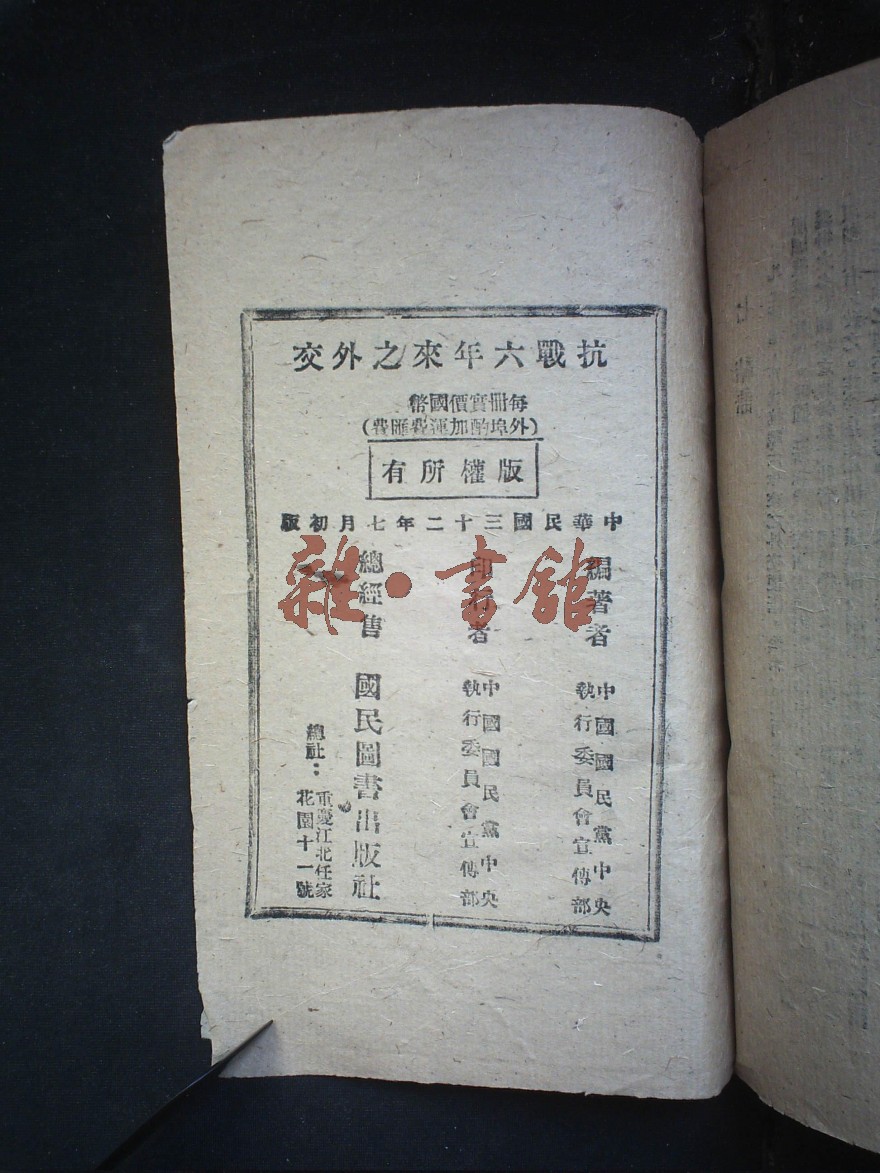 抗戰六年來之外交
每冊實價國幣
(外埠酌加運費匯費)
版權所有
中華民國三十二年七月初版
編著者
中國國民黨中央
執行委員會宣傳部
印行者
中國國民黨中央
執行委員會宣傳部
總經售
國民圖書出版社
總社：
重慶江北任家
花園十一號
雜·書館